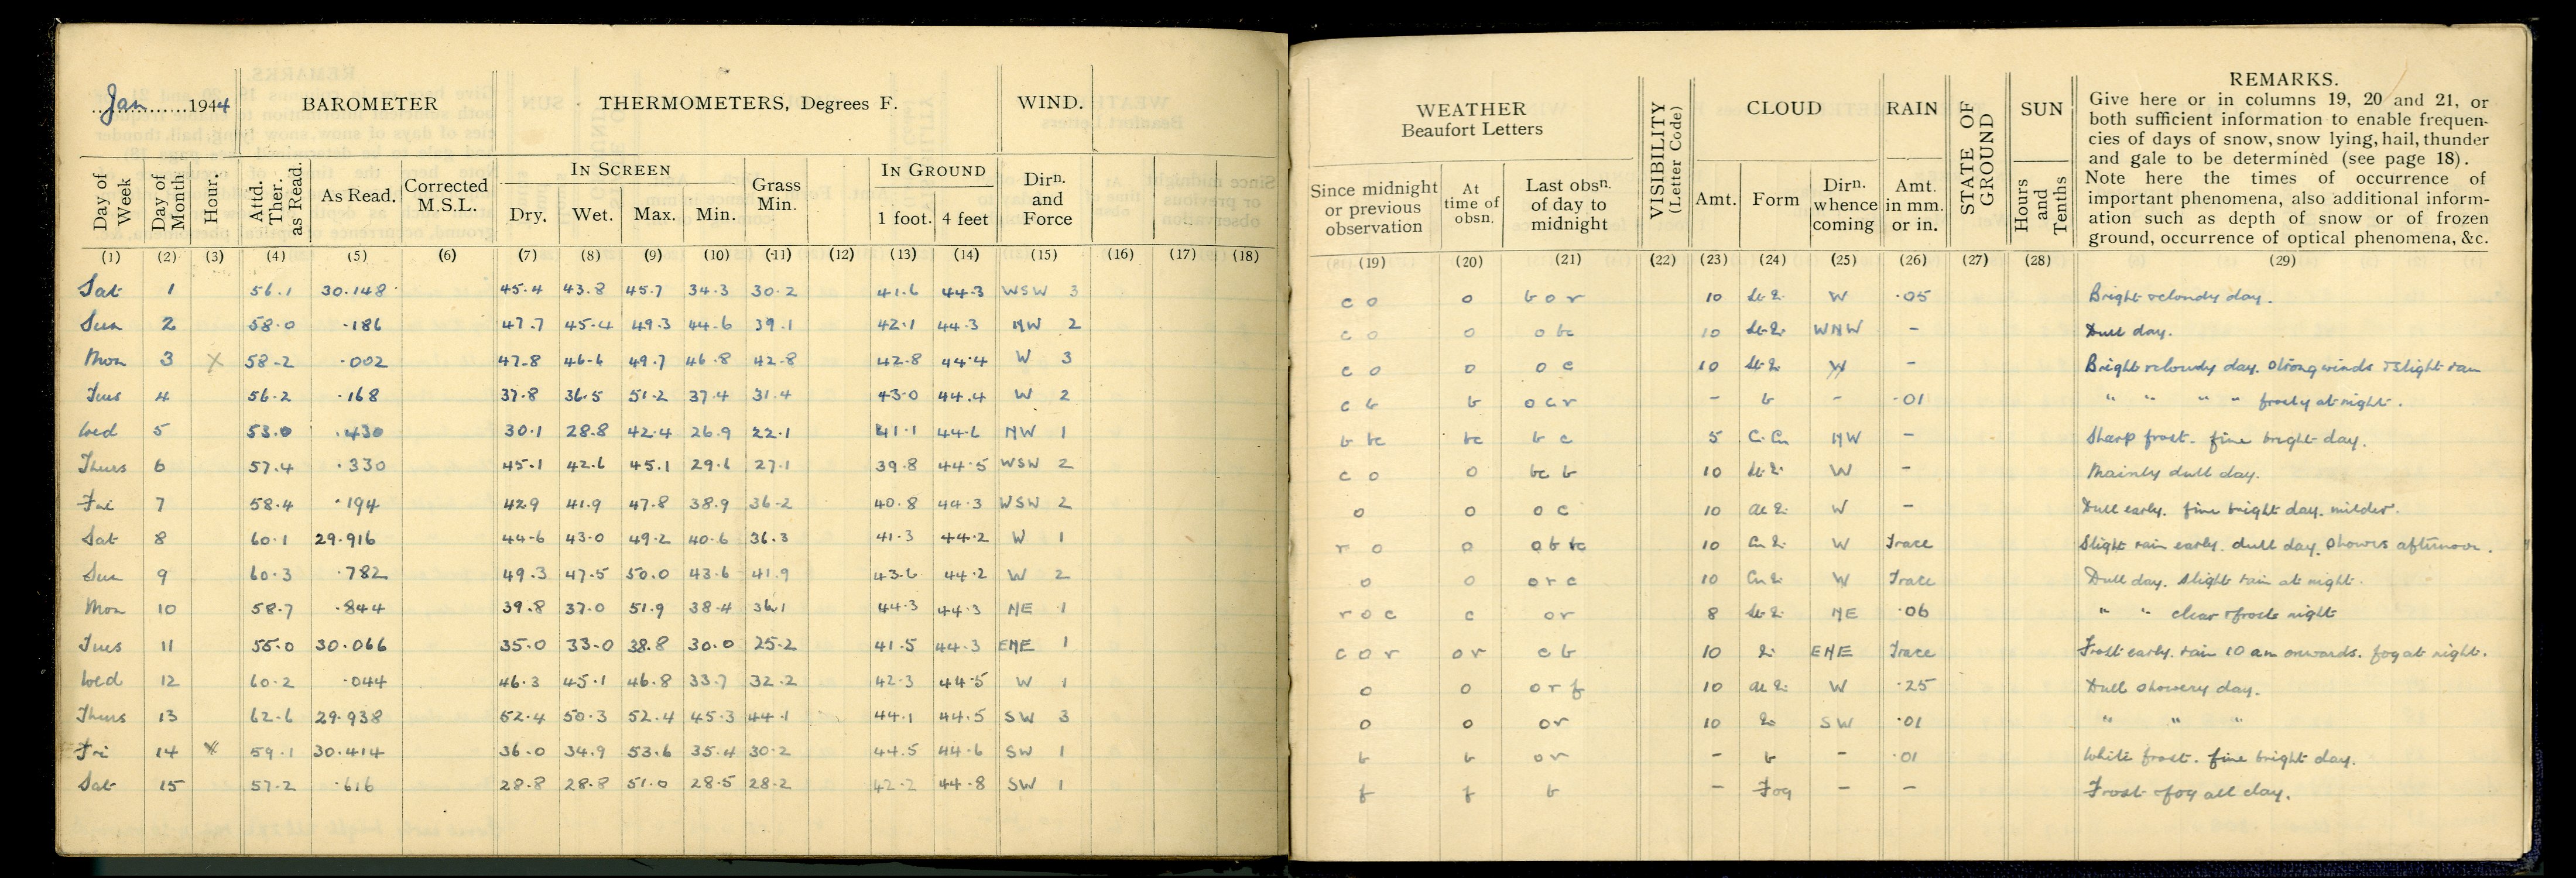 Jan 1944 BAROMETER THERMOMETERS, Degrees F. WIND.
Day of Week Day of Month Hour. Attd. Ther. as Read. As Read. Corrected M.S.L. IN SCREEN Dry. Wet. Max. Min. Grass Min. IN GROUND 1 foot. 4 feet Dirn. and Force
(1) (2) (3) (4) (5) (6) (7) (8) (9) (10) (11) (12) (13) (14) (15) (16) (17) (18)
Sat 1 56.1 30.148 45.4 43.8 45.7 34.3 30.2 41.6 44.3 WSW 3
Sun 2 58.0 .186 47.7 45.4 49.3 44.6 39.1 42.1 44.3 NW 2
Mon 3 X 58.2 .002 47.8 46.6 49.7 46.8 42.8 42.8 44.4 W 3
Tues 4 56.2 .168 37.8 36.5 51.2 37.4 31.4 43.0 44.4 W 2
Wed 5 53.0 .430 30.1 28.8 42.4 26.9 22.1 41.1 44.6 NW 1
Thurs 6 57.4 .330 45.1 42.6 45.1 29.6 27.1 39.8 44.5 WSW 2
Fri 7 58.4 .194 42.9 41.9 47.8 38.9 36.2 40.8 44.3 WSW 2
Sat 8 60.1 29.916 44.6 43.0 49.2 40.6 36.3 41.3 44.2 W 1
Sun 9 60.3 .782 49.3 47.5 50.0 43.6 41.9 43.6 44.2 W 2
Mon 10 58.7 .844 39.8 37.0 51.9 38.4 36.1 44.3 44.3 NE 1
Tues 11 55.0 30.066 35.0 33.0 38.8 30.0 25.2 41.5 44.3 ENE 1
Wed 12 60.2 .044 46.3 45.1 46.8 33.7 32.2 42.3 44.5 W 1
Thurs 13 62.6 29.938 52.4 50.3 52.4 45.3 44.1 44.1 44.5 SW 3
Fri 14 X 59.1 30.414 36.0 34.9 53.6 35.4 30.2 44.5 44.6 SW 1
Sat 15 57.2 .616 28.8 28.8 51.0 28.5 28.2 42.2 44.8 SW 1
WEATHER Beaufort Letters VISIBILITY (Letter Code) CLOUD RAIN STATE OF GROUND SUN REMARKS.
Give here or in columns 19, 20 and 21, or
both sufficient information to enable frequen-
cies of days of snow, snow lying, hail, thunder
and gale to be determined (see page 18).
Note here the times of occurrence of
important phenomena, also additional inform-
ation such as depth of snow or of frozen
ground, occurrence of optical phenomena, &c.
Since midnight or previous observation At time of obsn. Last obsn. of day to midnight Amt. Form Dirn. whence coming Amt. in mm. or in. Hours and Tenths
(19) (20) (21) (22) (23) (24) (25) (26) (27) (28) (29)
c o o b o r 10 W .05 Bright & cloudy day.
c o o o bc 10 WNW - Dull day.
c o o o c 10 W - Bright & cloudy day. Strong winds & slight rain
c b b o c r - b - .01 " " " " frosty at night.
b bc bc b c 5 NW - Sharp frost. fine bright day.
c o o bc b 10 W - Mainly dull day.
o o o c 10 W - Dull early. fine bright day. milder.
r o o o b bc 10 W Trace Slight rain early. dull day. Showers afternoon.
o o o r c 10 W Trace Dull day. Slight rain at night.
r o c c o r 8 NE .06 " " clear & frosty night
c o r o r c b 10 ENE Trace Frost early. rain 10 am onwards. fog at night.
o o o r f 10 W .25 Dull showery day.
o o o r 10 SW .01 " " "
b b o r - b - .01 White frost. fine bright day.
f f b - Fog - - Frost & fog all day.